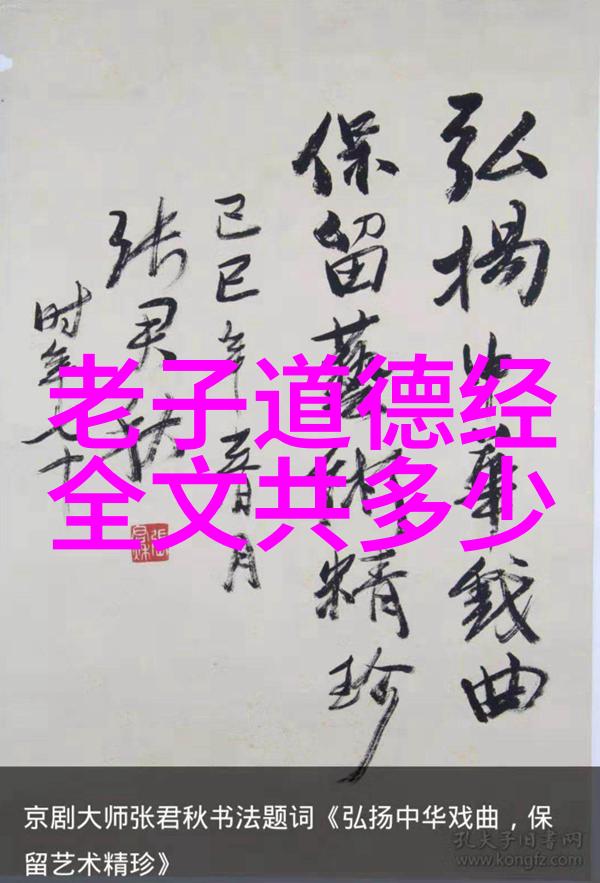 弘揚中華戲曲
保留藝術精珍
己巳年五月
张君秋
时年七十
老子道德经
全文共多少
京剧大师张君秋书法题词《弘扬中华戏曲，保
留艺术精珍》
孔夫子旧书网
www.kongfz.com